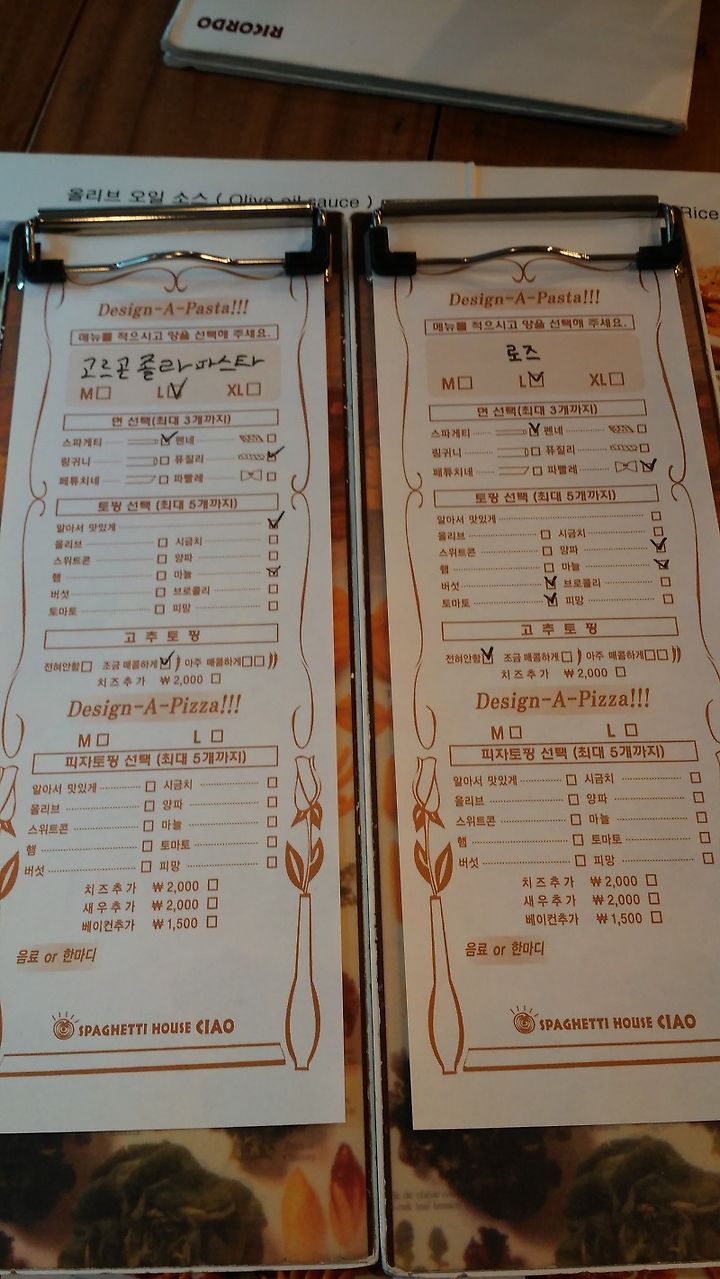 RICORDO
올리브 오일 소스 ( Olive oil sauce )
Rice
Design-A-Pasta!!!
메뉴를 적으시고 양을 선택해 주세요.
고르곤졸라파스타
M L XL
면 선택(최대 3개까지)
스파게티 펜네
링귀니 퓨질리
페투치네 파팔레
토핑 선택 (최대 5개까지)
알아서 맛있게
올리브 시금치
스위트콘 양파
햄 마늘
버섯 브로콜리
토마토 피망
고추토핑
전혀안함 조금 매콤하게 아주 매콤하게
치즈추가 ₩2,000
Design-A-Pizza!!!
M L
피자토핑 선택 (최대 5개까지)
알아서 맛있게 시금치
올리브 양파
스위트콘 마늘
햄 토마토
버섯 피망
치즈추가 ₩2,000
새우추가 ₩2,000
베이컨추가 ₩1,500
음료 or 한마디
SPAGHETTI HOUSE CIAO
Design-A-Pasta!!!
메뉴를 적으시고 양을 선택해 주세요.
로즈
M L XL
면 선택(최대 3개까지)
스파게티 펜네
링귀니 퓨질리
페투치네 파팔레
토핑 선택 (최대 5개까지)
알아서 맛있게
올리브 시금치
스위트콘 양파
햄 마늘
버섯 브로콜리
토마토 피망
고추토핑
전혀안함 조금 매콤하게 아주 매콤하게
치즈추가 ₩2,000
Design-A-Pizza!!!
M L
피자토핑 선택 (최대 5개까지)
알아서 맛있게 시금치
올리브 양파
스위트콘 마늘
햄 토마토
버섯 피망
치즈추가 ₩2,000
새우추가 ₩2,000
베이컨추가 ₩1,500
음료 or 한마디
SPAGHETTI HOUSE CIAO